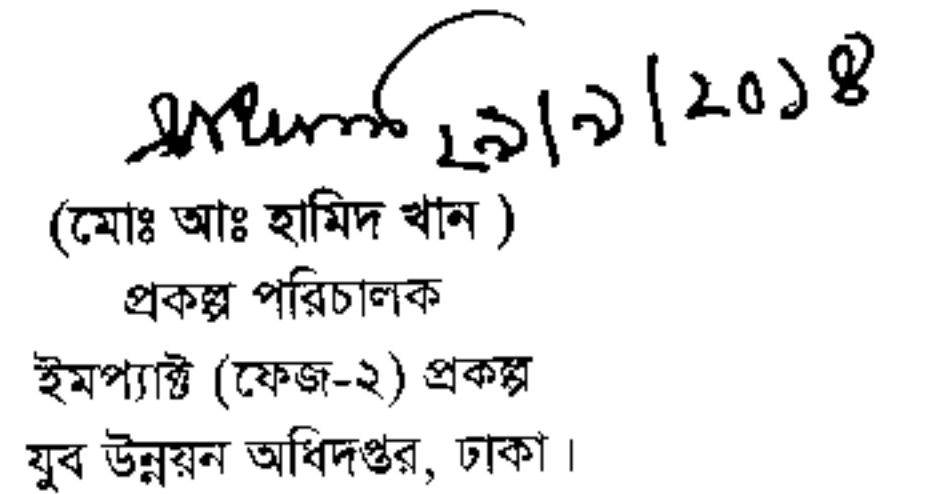 ২৯/৯/২০১৪
(মোঃ আঃ হামিদ খান )
প্রকল্প পরিচালক
ইমপ্যাক্ট (ফেজ-২) প্রকল্প
যুব উন্নয়ন অধিদপ্তর, ঢাকা।